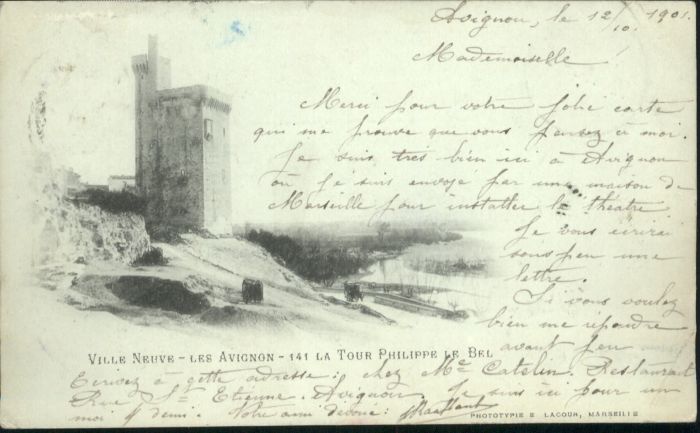 Avignon, le 12/10. 1901.
Mademoiselle
Merci pour votre jolie carte
qui me prouve que vous pensez à moi.
Je suis très bien ici à Avignon
où je suis envoyé par une maison de
Marseille pour installer le théatre
Je vous écrirai
sous peu une
lettre.
Si vous voulez
bien me répondre
avant peu
VILLE NEUVE - LES AVIGNON - 141 LA TOUR PHILIPPE LE BEL
Ecrivez à cette adresse: chez Mr Catelin. Restaurant
Rue St Etienne. Avignon. Je suis ici pour un
moi & demi. Votre ami dévoué:
PHOTOTYPIE E. LACOUR, MARSEILLE